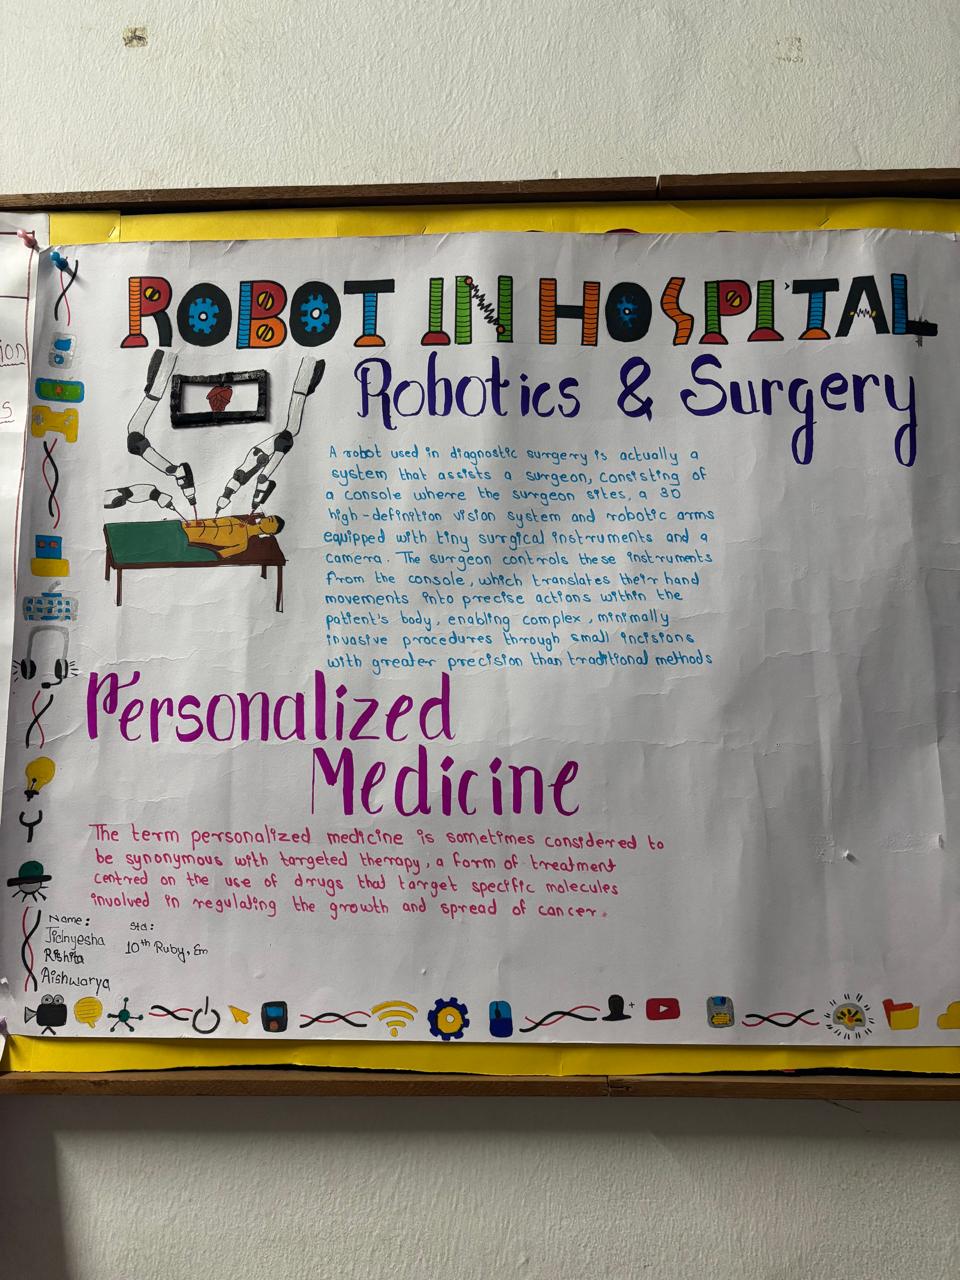 ion
s
ROBOT IN HOSPITAL
Robotics & Surgery
A robot used in diagnostic surgery is actually a
system that assists a surgeon, consisting of
a console where the surgeon sites, a 3D
high-definition vision system and robotic arms
equipped with tiny surgical instruments and a
camera. The surgeon controls these instruments
from the console, which translates their hand
movements into precise actions within the
patient's body, enabling complex, minimally
invasive procedures through small incisions
with greater precision than traditional methods
Personalized
Medicine
The term personalized medicine is sometimes considered to
be synonymous with targeted therapy, a form of treatment
centred on the use of drugs that target specific molecules
involved in regulating the growth and spread of cancer.
Name: Std:
Jidnyesha 10th Ruby, Em
Rishita
Aishwarya